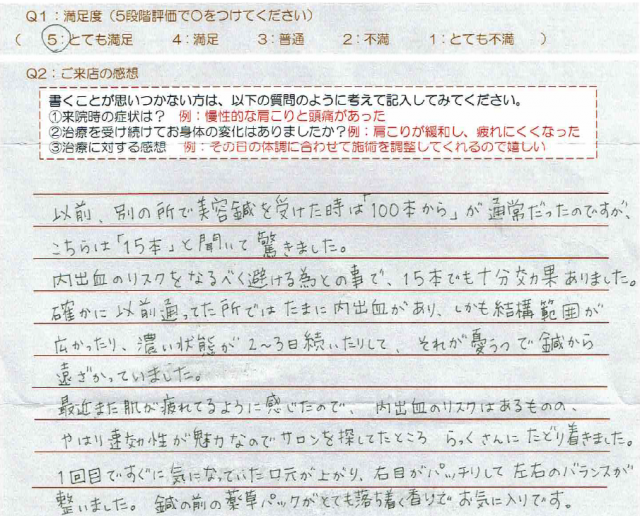 Q1：満足度（5段階評価で○をつけてください）
（　5：とても満足　4：満足　3：普通　2：不満　1：とても不満　）
Q2：ご来店の感想
書くことが思いつかない方は、以下の質問のように考えて記入してみてください。
①来院時の症状は？ 例：慢性的な肩こりと頭痛があった
②治療を受け続けてお身体の変化はありましたか？例：肩こりが緩和し、疲れにくくなった
③治療に対する感想 例：その日の体調に合わせて施術を調整してくれるので嬉しい
以前、別の所で美容鍼を受けた時は「100本から」が通常だったのですが、
こちらは「15本」と聞いて驚きました。
内出血のリスクをなるべく避ける為との事で、15本でも十分効果ありました。
確かに以前通ってた所ではたまに内出血があり、しかも結構範囲が
広かったり、濃い状態が2～3日続いたりして、それが憂うつで鍼から
遠ざかっていました。
最近また肌が疲れてるように感じたので、内出血のリスクはあるものの、
やはり速効性が魅力なのでサロンを探してたところ らっくさんにたどり着きました。
1回目ですぐに気になっていた口元が上がり、右目がパッチリして左右のバランスが
整いました。鍼の前の薬草パックがとても落ち着く香りでお気に入りです。